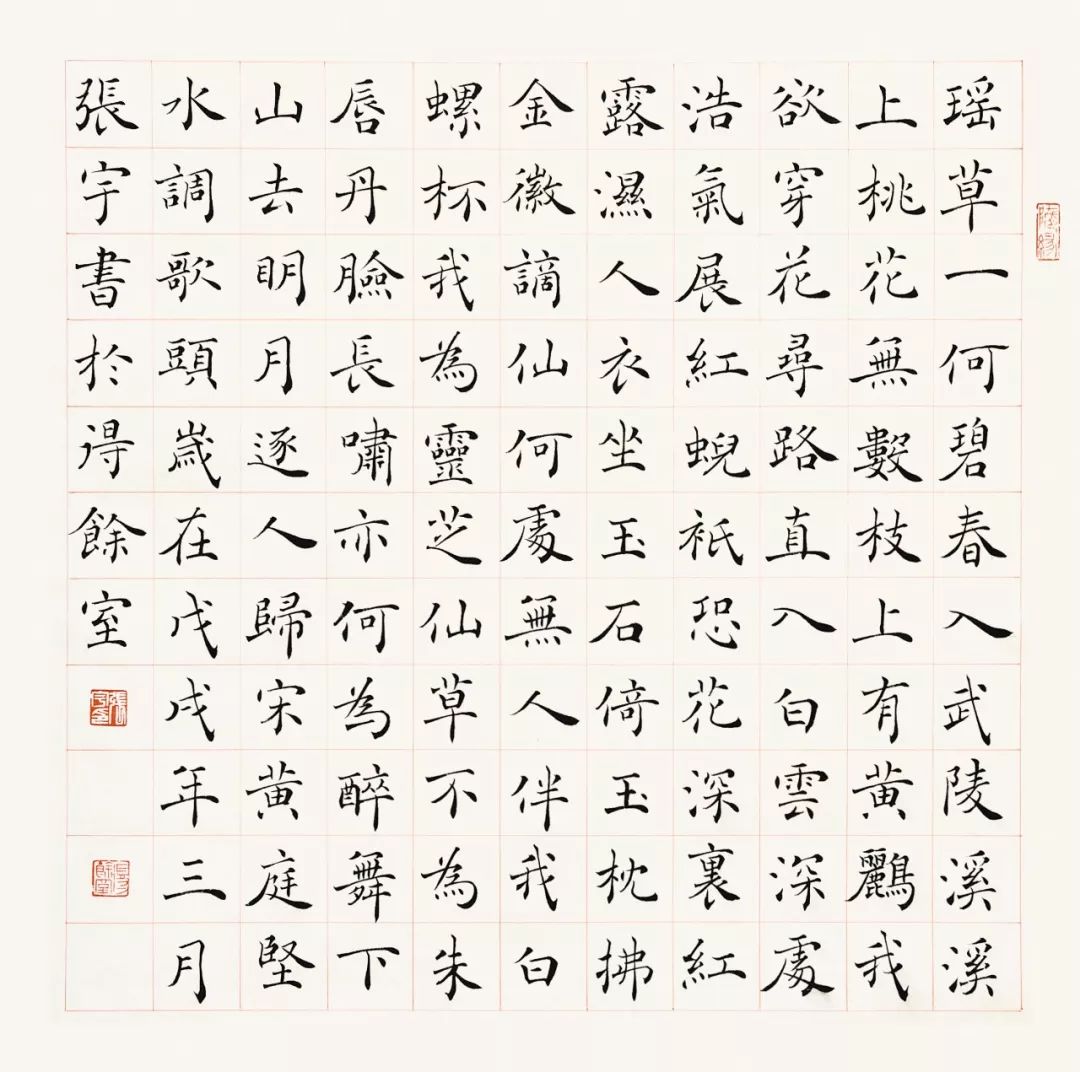 瑶草一何碧春入武陵溪溪
上桃花無數枝上有黄鸝我
欲穿花尋路直入白雲深處
浩氣展紅蜺祇恐花深裏紅
露濕人衣坐玉石倚玉枕拂
金徽謫仙何處無人伴我白
螺杯我為靈芝仙草不為朱
唇丹臉長嘯亦何為醉舞下
山去明月逐人歸宋黄庭堅
水調歌頭歲在戊戌年三月
張宇書於得餘室